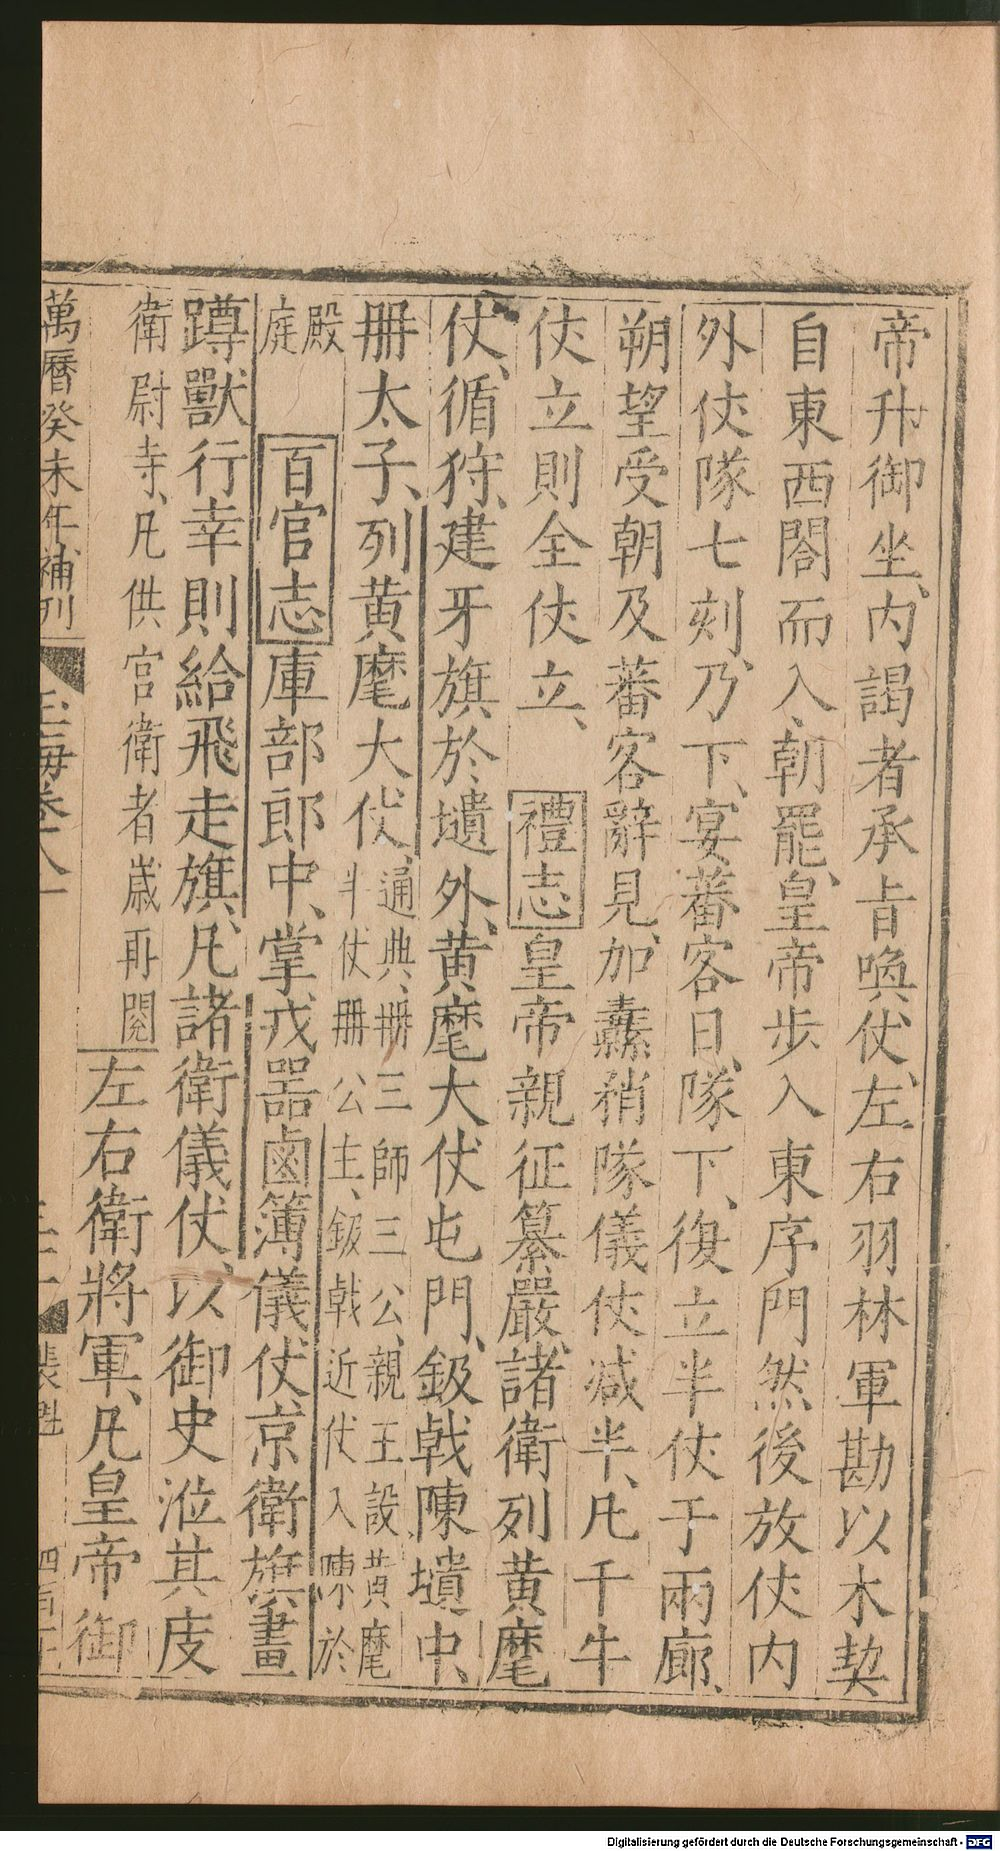 帝升御坐、内謁者承旨喚仗、左右羽林軍勘以木契
自東西閤而入、朝罷、皇帝步入東序門然後放仗内
外仗隊七刻、乃下、宴蕃客日、隊下、復立半仗于兩廊、
朔望受朝及蕃客辭見、加纛矟隊儀仗减半、凡千牛
仗立則全仗立、禮志皇帝親征纂嚴、諸衛列黄麾
仗、循狩、建牙旗於壝外、黄麾大仗屯門、鈒戟陳壝中、
冊太子、列黄麾大仗、通典、冊三師三公、親王設黄麾
半仗冊公主、鈒戟近仗入陳於
殿
庭
百官志庫部郎中、掌戎器鹵簿儀仗、京衛旗畫
蹲獸行幸則給飛走旗、凡諸衛儀仗、以御史涖其庋
衛尉寺、凡供宮衛者歲再閱左右衛將軍、凡皇帝御
萬曆癸未年補刊
玉海卷八
裴魁
四百
Digitalisierung gefördert durch die Deutsche Forschungsgemeinschaft - DFG